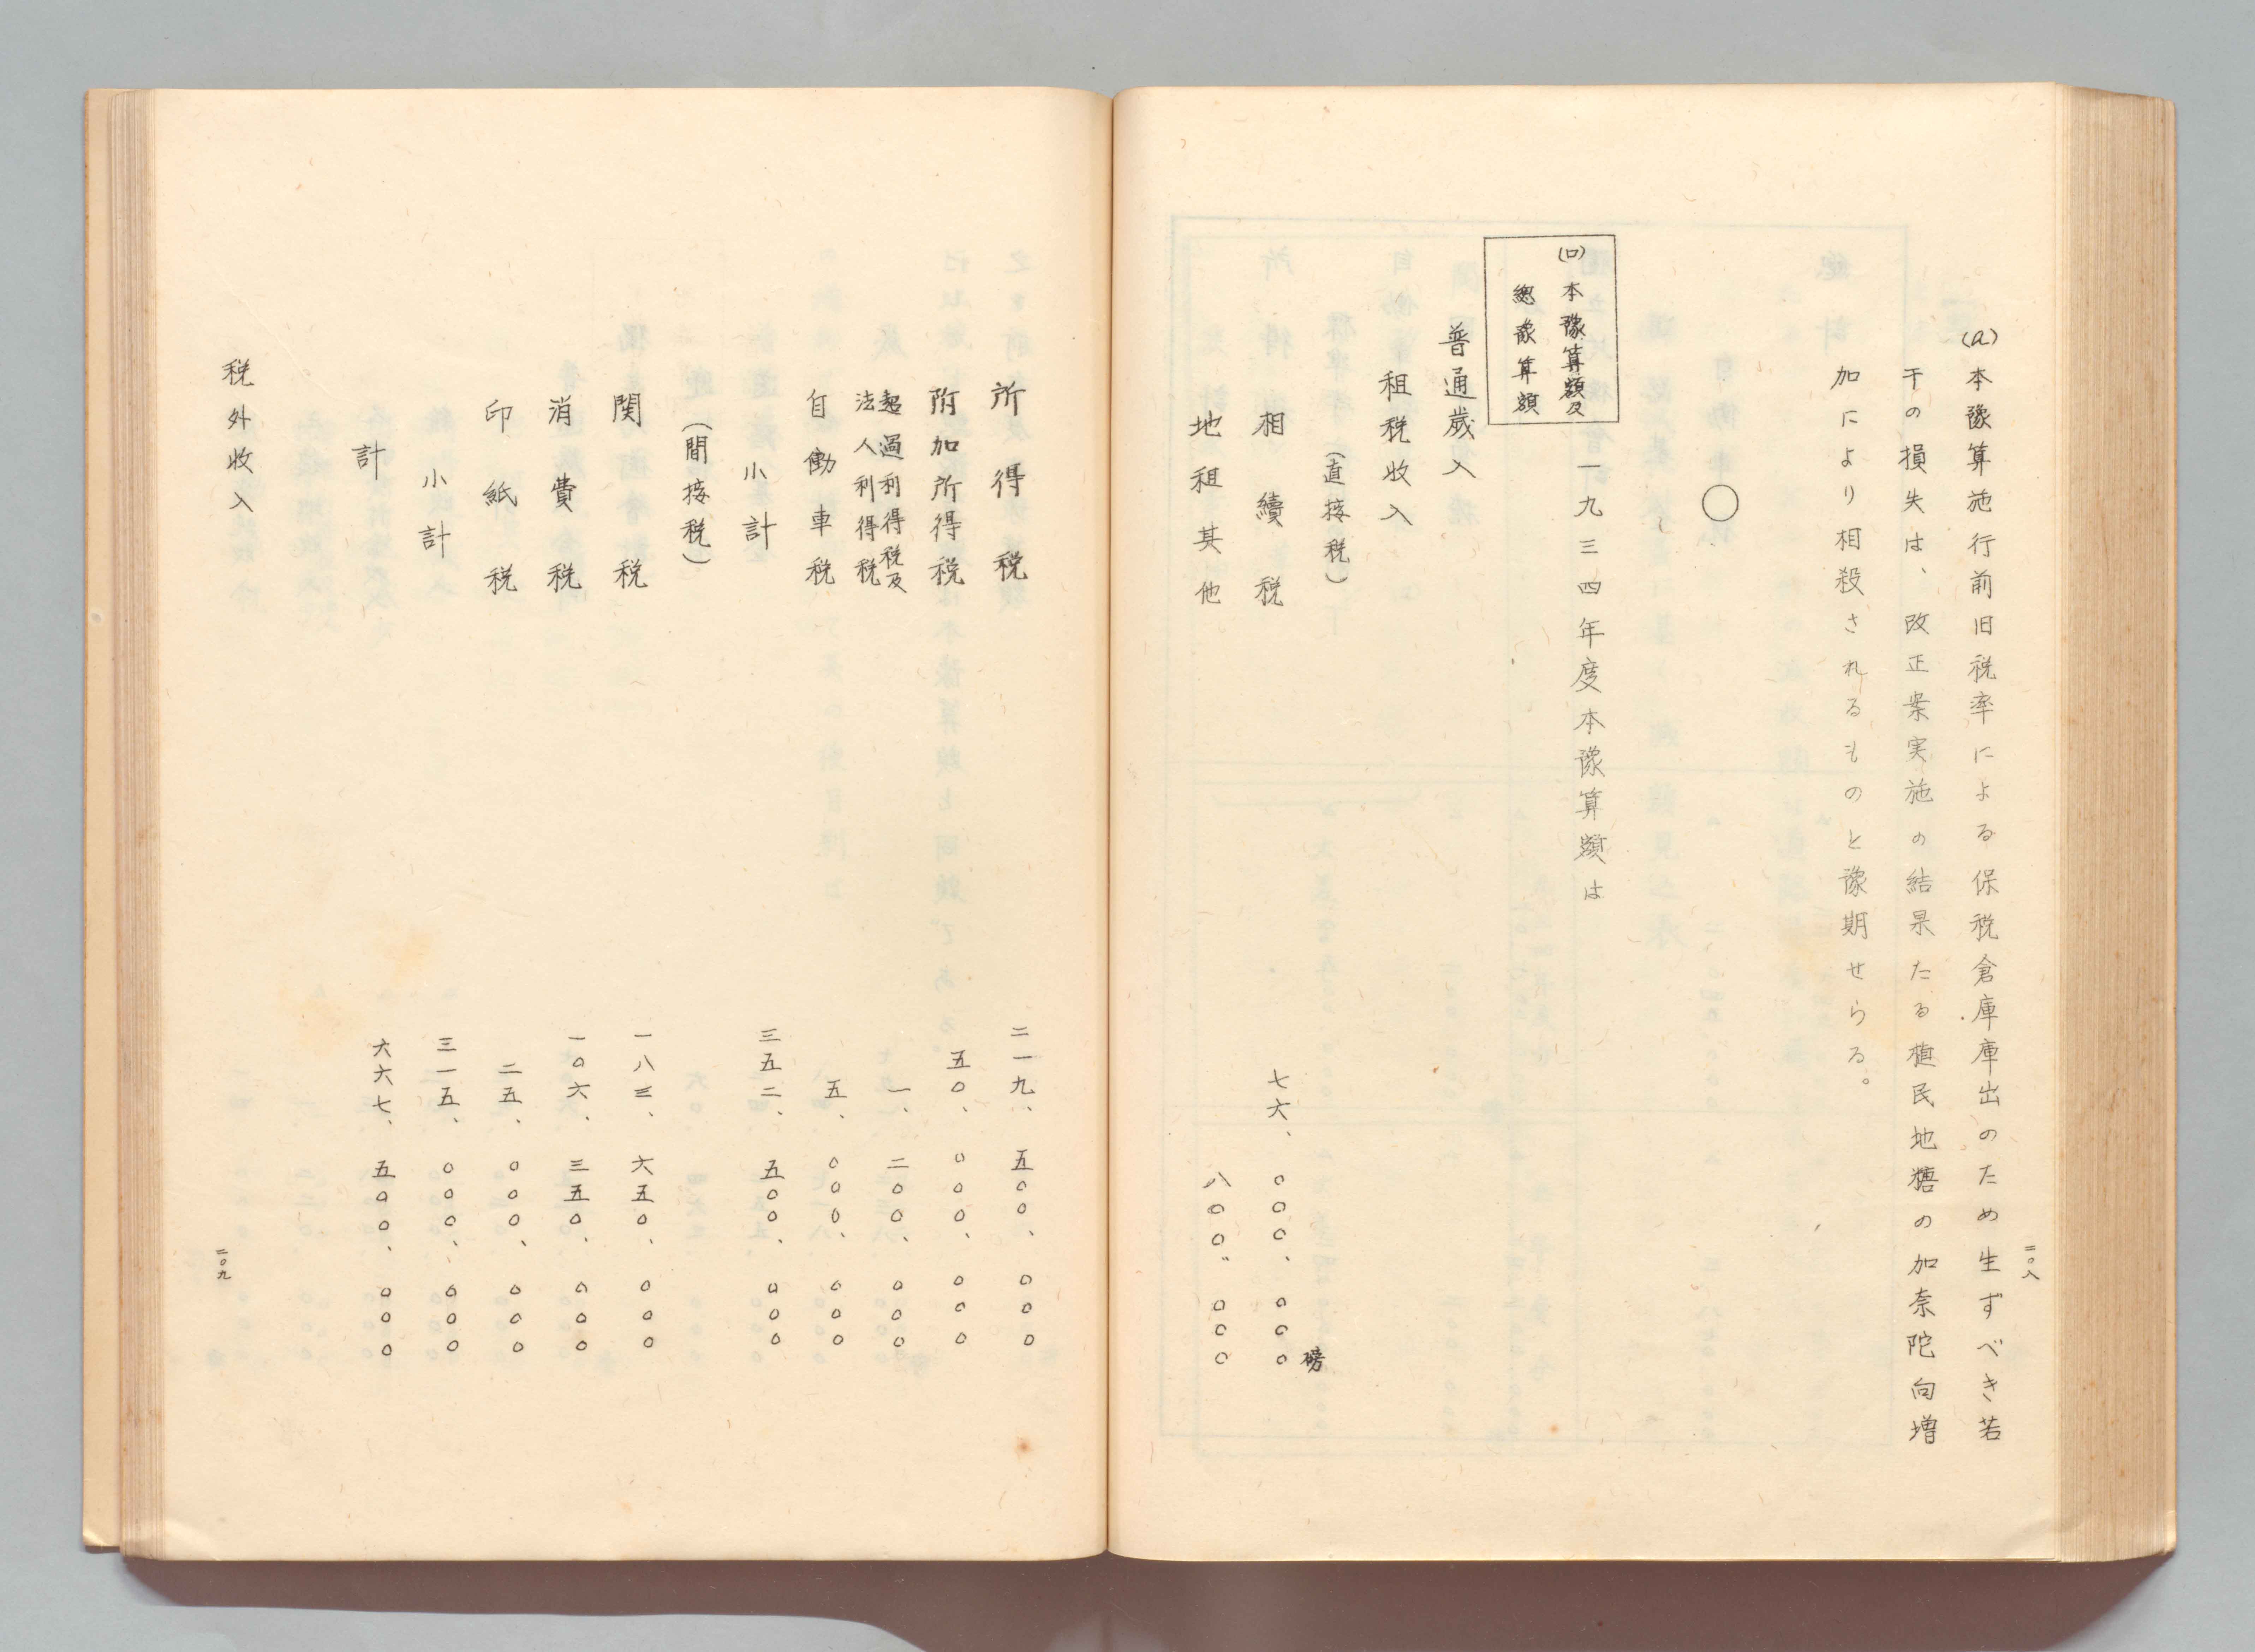 (a)本豫算施行前旧税率による保税倉庫庫出のため生ずべき若
干の損失は、改正案実施の結果たる植民地糖の加奈陀向増
加により相殺されるものと豫期せらる。
○
(ロ)本豫算額及
總豫算額
一九三四年度本豫算額は
普通歳入
租税收入
(直接税)
磅
相續税 七六、〇〇〇、〇〇〇
地租其他 八〇〇、〇〇〇
二〇八
所得税 二一九、五〇〇、〇〇〇
附加所得税 五〇、〇〇〇、〇〇〇
超過利得税及
法人利得税 一、二〇〇、〇〇〇
自働車税 五、〇〇〇、〇〇〇
小計 三五二、五〇〇、〇〇〇
(間接税)
関税 一八三、六五〇、〇〇〇
消費税 一〇六、三五〇、〇〇〇
印紙税 二五、〇〇〇、〇〇〇
小計 三一五、〇〇〇、〇〇〇
計 六六七、五〇〇、〇〇〇
税外收入
二〇九